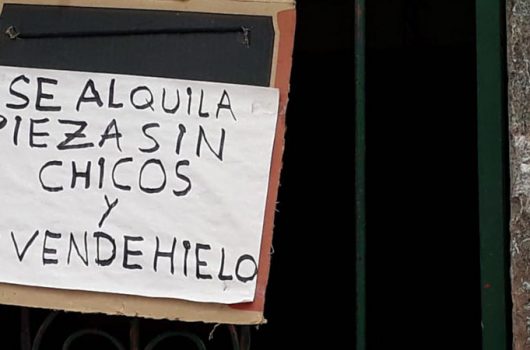 SE ALQUILA
PIEZA SIN
CHICOS
Y
VENDE HIELO